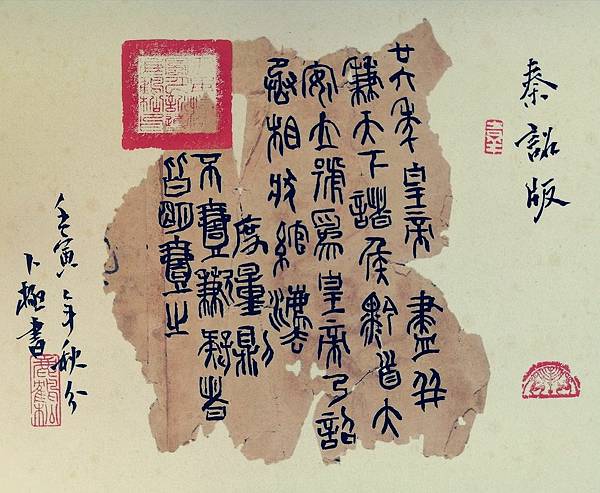 秦詔版
廿六年皇帝盡并
兼天下諸侯黔首大
安立號為皇帝乃詔
丞相狀綰灋
度量則
不壹歉疑者
皆明壹之
壬寅之年秋分
書